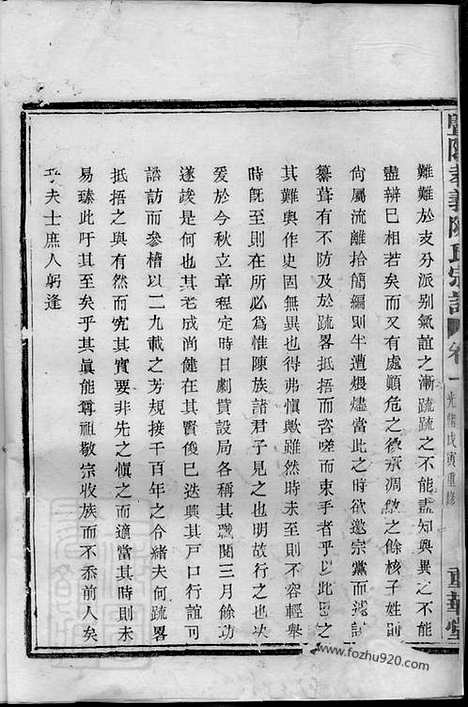 暨陽孝義陳氏宗譜 卷一 光緒戊寅重修 重華堂
難難於支分派别氣誼之漸疏疏之不能盡知與異之不能
盡辨已相若矣而又有處顛危之後承凋敝之餘核子姓則
尙屬流離拾簡編則半遭煨燼當此之時欲邀宗黨而議訪
纂葺有不防及於疏畧抵捂而咨嗟而束手者乎以此思之
其難與作史固無異也得弗慎歟雖然時未至則不容輕舉
時旣至則在所必爲惟陳族諸君子見之也明故行之也決
爰於今秋立章程定時日劇貲設局各稱其職閱三月餘功
遂竣是何其老成尚健在典型猶僾已迭興其戶口行誼可
諮訪而參稽以二九載之芳規接千百年之令緒夫何疏畧
抵捂之與有然而究其實要非先之愼之而適當其時則未
易臻此吁其至矣乎其眞能尊祖敬宗收族而不忝前人矣
乎夫士庶人躬逢
www.fozhu920.com